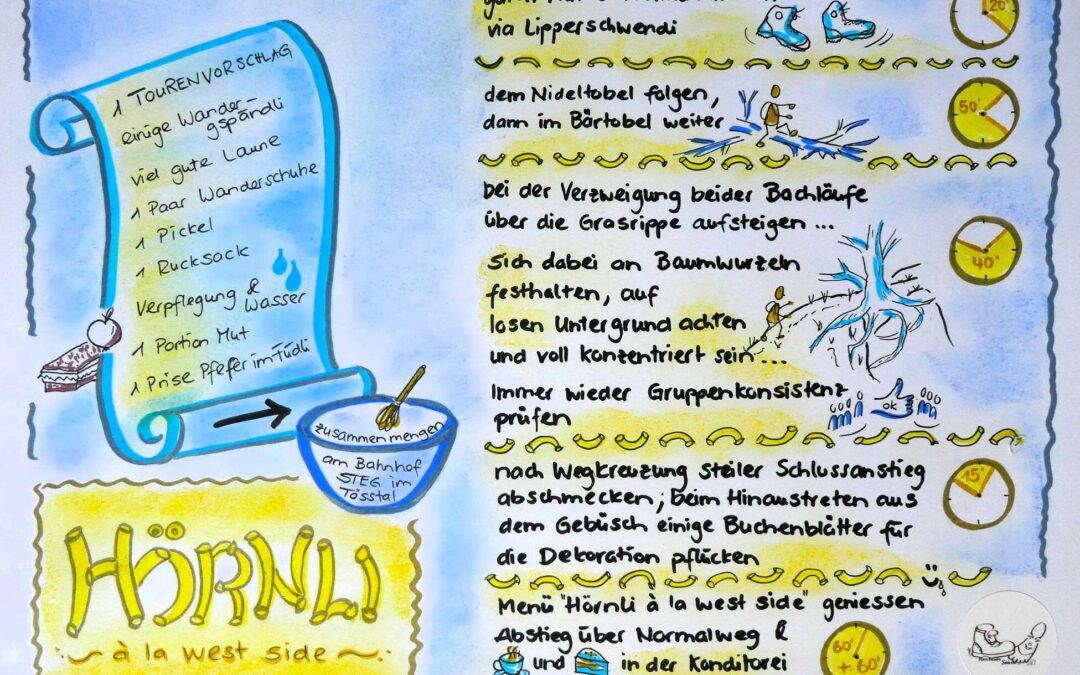 1 TOURENVORSCHLAG
einige Wander-
gspändli
viel gute Laune
1 Paar Wanderschuhe
1 Pickel
1 Rucksack
Verpflegung &
Wasser
1 Portion Mut
1 Prise Pfefer im Füdli
zusammen mengen
am Bahnhof
STEG im
Tösstal
HÖRNLI
~ à la west side ~
via Lipperschwendi
20'
dem Nideltobel folgen,
dann im Bärtobel weiter
50'
bei der Verzweigung beider Bachläufe
über die Grasrippe aufsteigen ...
sich dabei an Baumwurzeln
festhalten, auf
losen Untergrund achten
und voll konzentriert sein ...
40'
Immer wieder Gruppenkonsistenz
prüfen
OK
nach Wegkreuzung steiler Schlussanstieg
abschmecken; beim Hinaustreten aus
dem Gebüsch einige Buchenblätter für
die Dekoration pflücken
15'
Menü "Hörnli à la west side" geniessen
Abstieg über Normalweg &
und in der Konditorei
60'
+ 60'